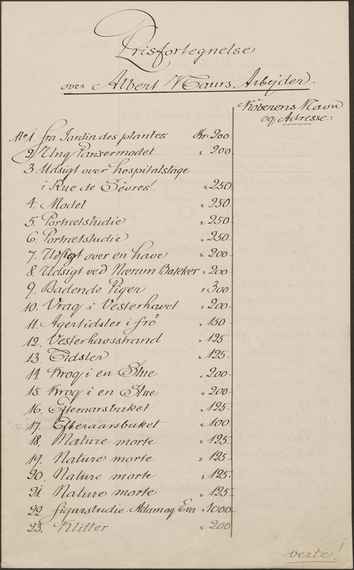 Prisfortegnelse
over Albert Naurs Arbejder.
Køberens Navn
og Adresse.
No 1. fra Jardin des plantes Kr. 200
2. Ung Pansermodel " 200
3. Udsigt over hospitalstage
i Rue de Sèvres. " 250
4. Model " 250
5. Portrætstudie " 250
6. Portrætstudie " 250
7. Udsigt over en have " 200
8. Udsigt ved Nærum Bakker " 200
9. Badende Piger " 300
10. Vrag i Vesterhavet " 200
11. Agertidsler i frø " 150
12. Vesterhavsstrand " 125
13. Tidsler " 125
14. Krog i en Stue " 200
15. Krog i en Stue " 200
16. Efteraarsbuket " 125
17. Efteraarsbuket " 100
18. Nature morte " 125
19. Nature morte " 125
20. Nature morte " 125
21. Nature morte " 125
22. Figurstudie Adam og Eva " 1000
23. Klitter " 200
verte!